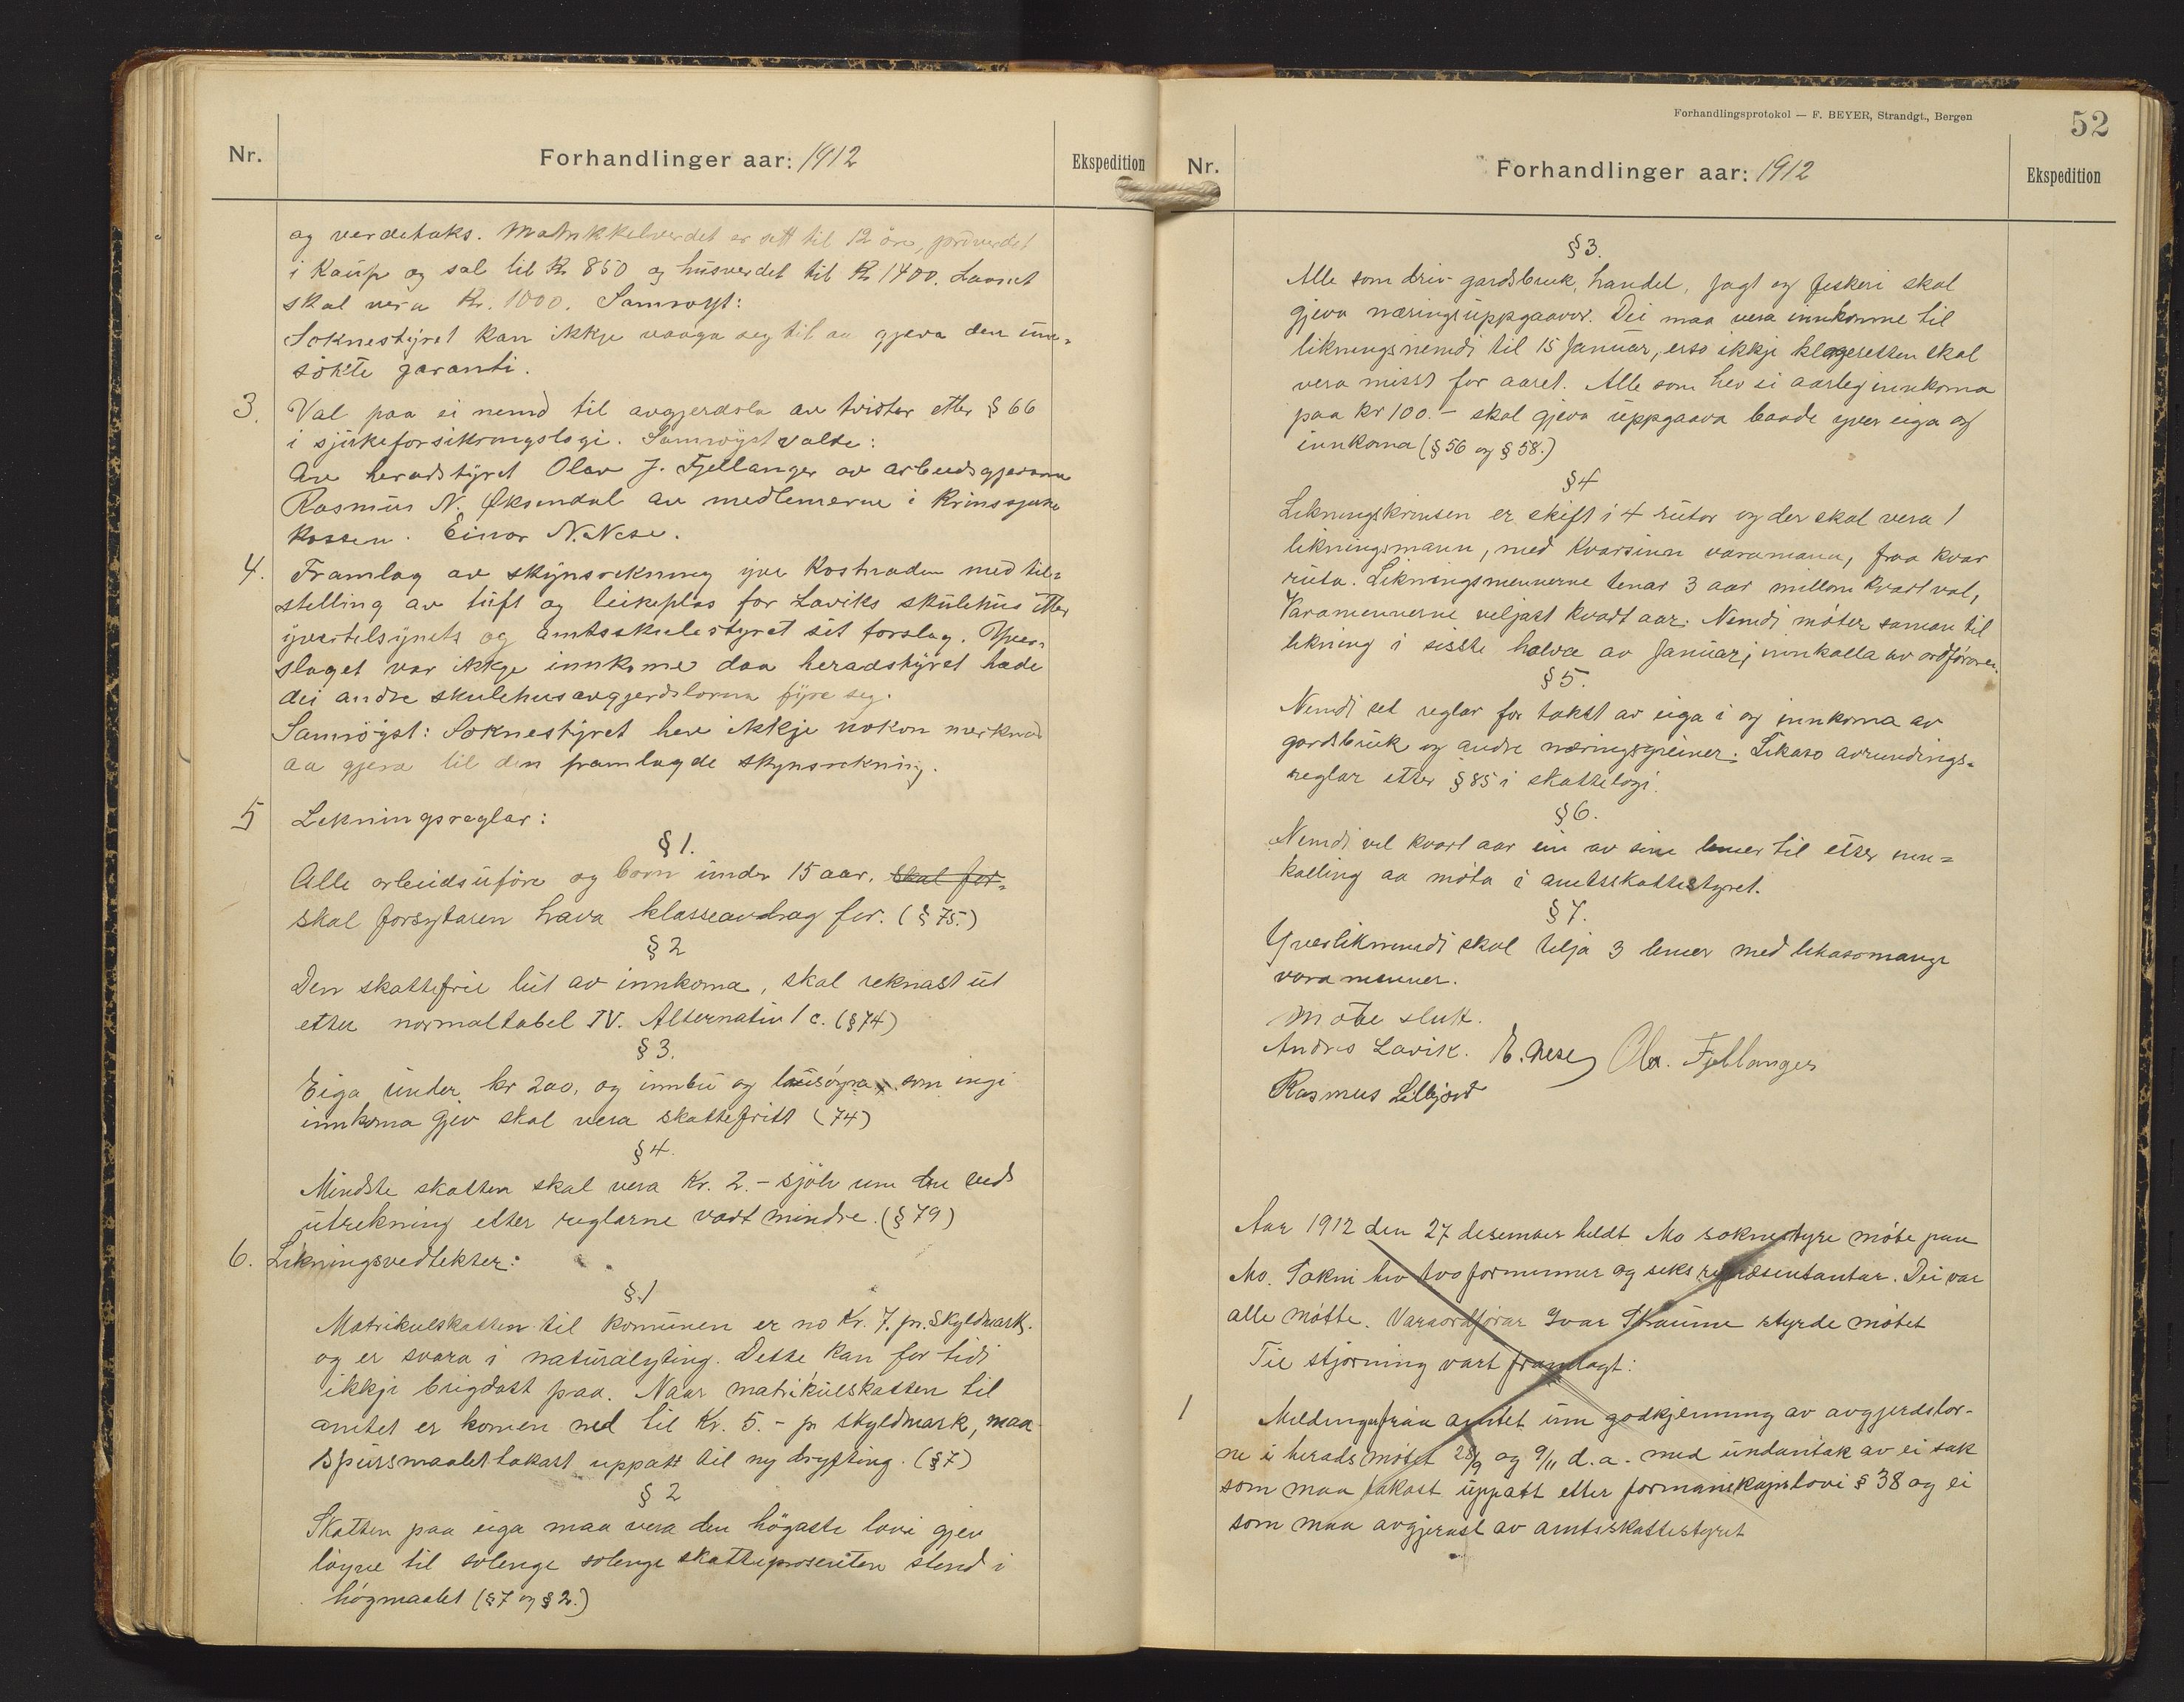 Nr.
Forhandlinger aar: 1912
Ekspedition
og verdetaks. Matrikkelverdet er sett til 12 öre, jordverdet
i Kaup og sal til Kr 850 og husverdet til Kr 1400. Laanet
skal vera Kr. 1000. Samrøyst:
Soknestyret kan ikkje vaaga seg til aa gjeva den um-
sökte garanti.
3. Val paa ei nemd til avgjerdsla av tvistar etter § 66
i sjukeforsikringslogi. Samröyst valde:
Av heradstyret Olav J. Fjellanger av arbeidsgjevarane
Rasmus N. Øksendal av medlemerne i Krinssjuke
kassen. Einar N. Nese.
4. Framlag av skynsrekning yver Kostnaden med til-
stelling av tuft og leikeplas for Laviks skulehus etter
yvertilsynets og amtsskulestyret sit forslag. Yver-
slaget var ikkje innkome daa heradstyret hade
dei andre skulehusavgjerdslorna fyre seg.
Samröyst: Soknestyret hev ikkje nokon merknad
aa gjera til den framlagde skynsrekning.
5 Lekningsreglar:
§ 1.
Alle arbeidsuföre og born under 15 aar. skal for-
skal forsytaren hava klasseavdrag for. (§ 75.)
§ 2
Den skattefrie lut av innkoma, skal reknast ut
etter normaltabel IV. Alternativ 1 c. (§ 74)
§ 3.
Eiga under kr 200, og innbu og lausöyra som ingi
innkoma gjev skal vera skattefritt (74)
§ 4.
Mindste skatten skal vera Kr. 2.- sjölv um den ved
utrekning etter reglarne vart mindre. (§ 79)
6. Likningsvedtekter:
§ 1
Matrikulskatten til komunen er no Kr. 7. pr. Skyldmark.
og er svara i naturalyting. Dette kan for tidi
ikkje brigdast paa. Naar matrikulskatten til
amtet er komen ned til Kr. 5.- pr skyldmark, maa
spursmaalet takast uppatt til ny dryfting. (§ 7)
§ 2
Skatten paa eiga maa vera den högaste lovi gjev
löyve til solenge solenge skatteprosenten stend i
högmaalet (§ 7 og § 2.)
Forhandlingsprotokol — F. BEYER, Strandgt., Bergen
52
Nr.
Forhandlinger aar: 1912
Ekspedition
§ 3.
Alle som driv gardsbruk, handel, jagt og feskeri skal
gjeva næringsuppgaavor. Dei maa vera innkomne til
likningsnemdi til 15 Januar, elso ikkje klageretten skal
vera misst for aaret. Alle som hev ei aarleg innkoma
paa kr 100.- skal gjeva uppgaava baade yver eiga og
innkoma (§ 56 og § 58.)
§ 4
Likningskrinsen er skift i 4 rutor og der skal vera 1
likningsmann, med Kvarsinn varamann, fraa kvar
ruta. Likningsmennerne tenar 3 aar millom kvart val,
Varamennerne veljast kvart aar. Nemdi möter saman til
likning i sisste halva av Januar, innkalla av ordföraren.
§ 5.
Nemdi set reglar for takst av eiga i og innkoma av
gardsbruk og andre næringsgreiner. Likaso avrundings-
reglar etter § 85 i skattelogi.
§ 6.
Nemdi vel kvart aar ein av sine lemer til etter inn-
kalling aa möta i amtsskattestyret.
§ 7.
Yverliknemdi skal telja 3 lemer med likasomange
varamenner.
Möte slutt.
Andres Lavik. E. Nese Ola. Fjellanger
Rasmus Lilljord
Aar 1912 den 27 desember heldt Mo soknestyre möte paa
Mo. Sokni hev tvo formenner og seks representantar. Dei var
alle mötte. Varaordförar Ivar Straume styrde mötet
Til stjorning vart framlagt:
1 Meldinger fraa amtet um godkjenning av avgjerdslor-
ne i heradsmötet 28/9 og 9/11 d.a. med undantak av ei sak
som maa takast uppatt etter formanskapslovi § 38 og ei
som maa avgjerast av amtsskattestyret